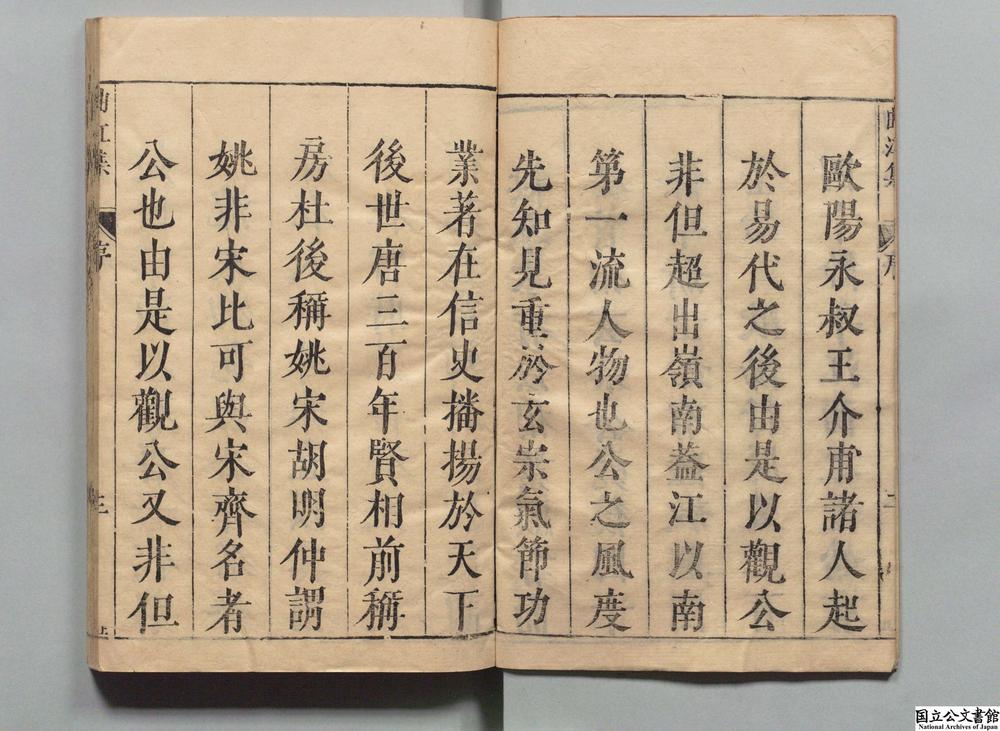 歐陽永叔王介甫諸人起
於易代之後由是以觀公
非但超出嶺南葢江以南
第一流人物也公之風度
先知見重於玄宗氣節功
業著在信史播揚於天下
後世唐三百年賢相前稱
房杜後稱姚宋胡明仲謂
姚非宋比可與宋齊名者
公也由是以觀公又非但
曲江集
序
三
国立公文書館
National Archives of Japan